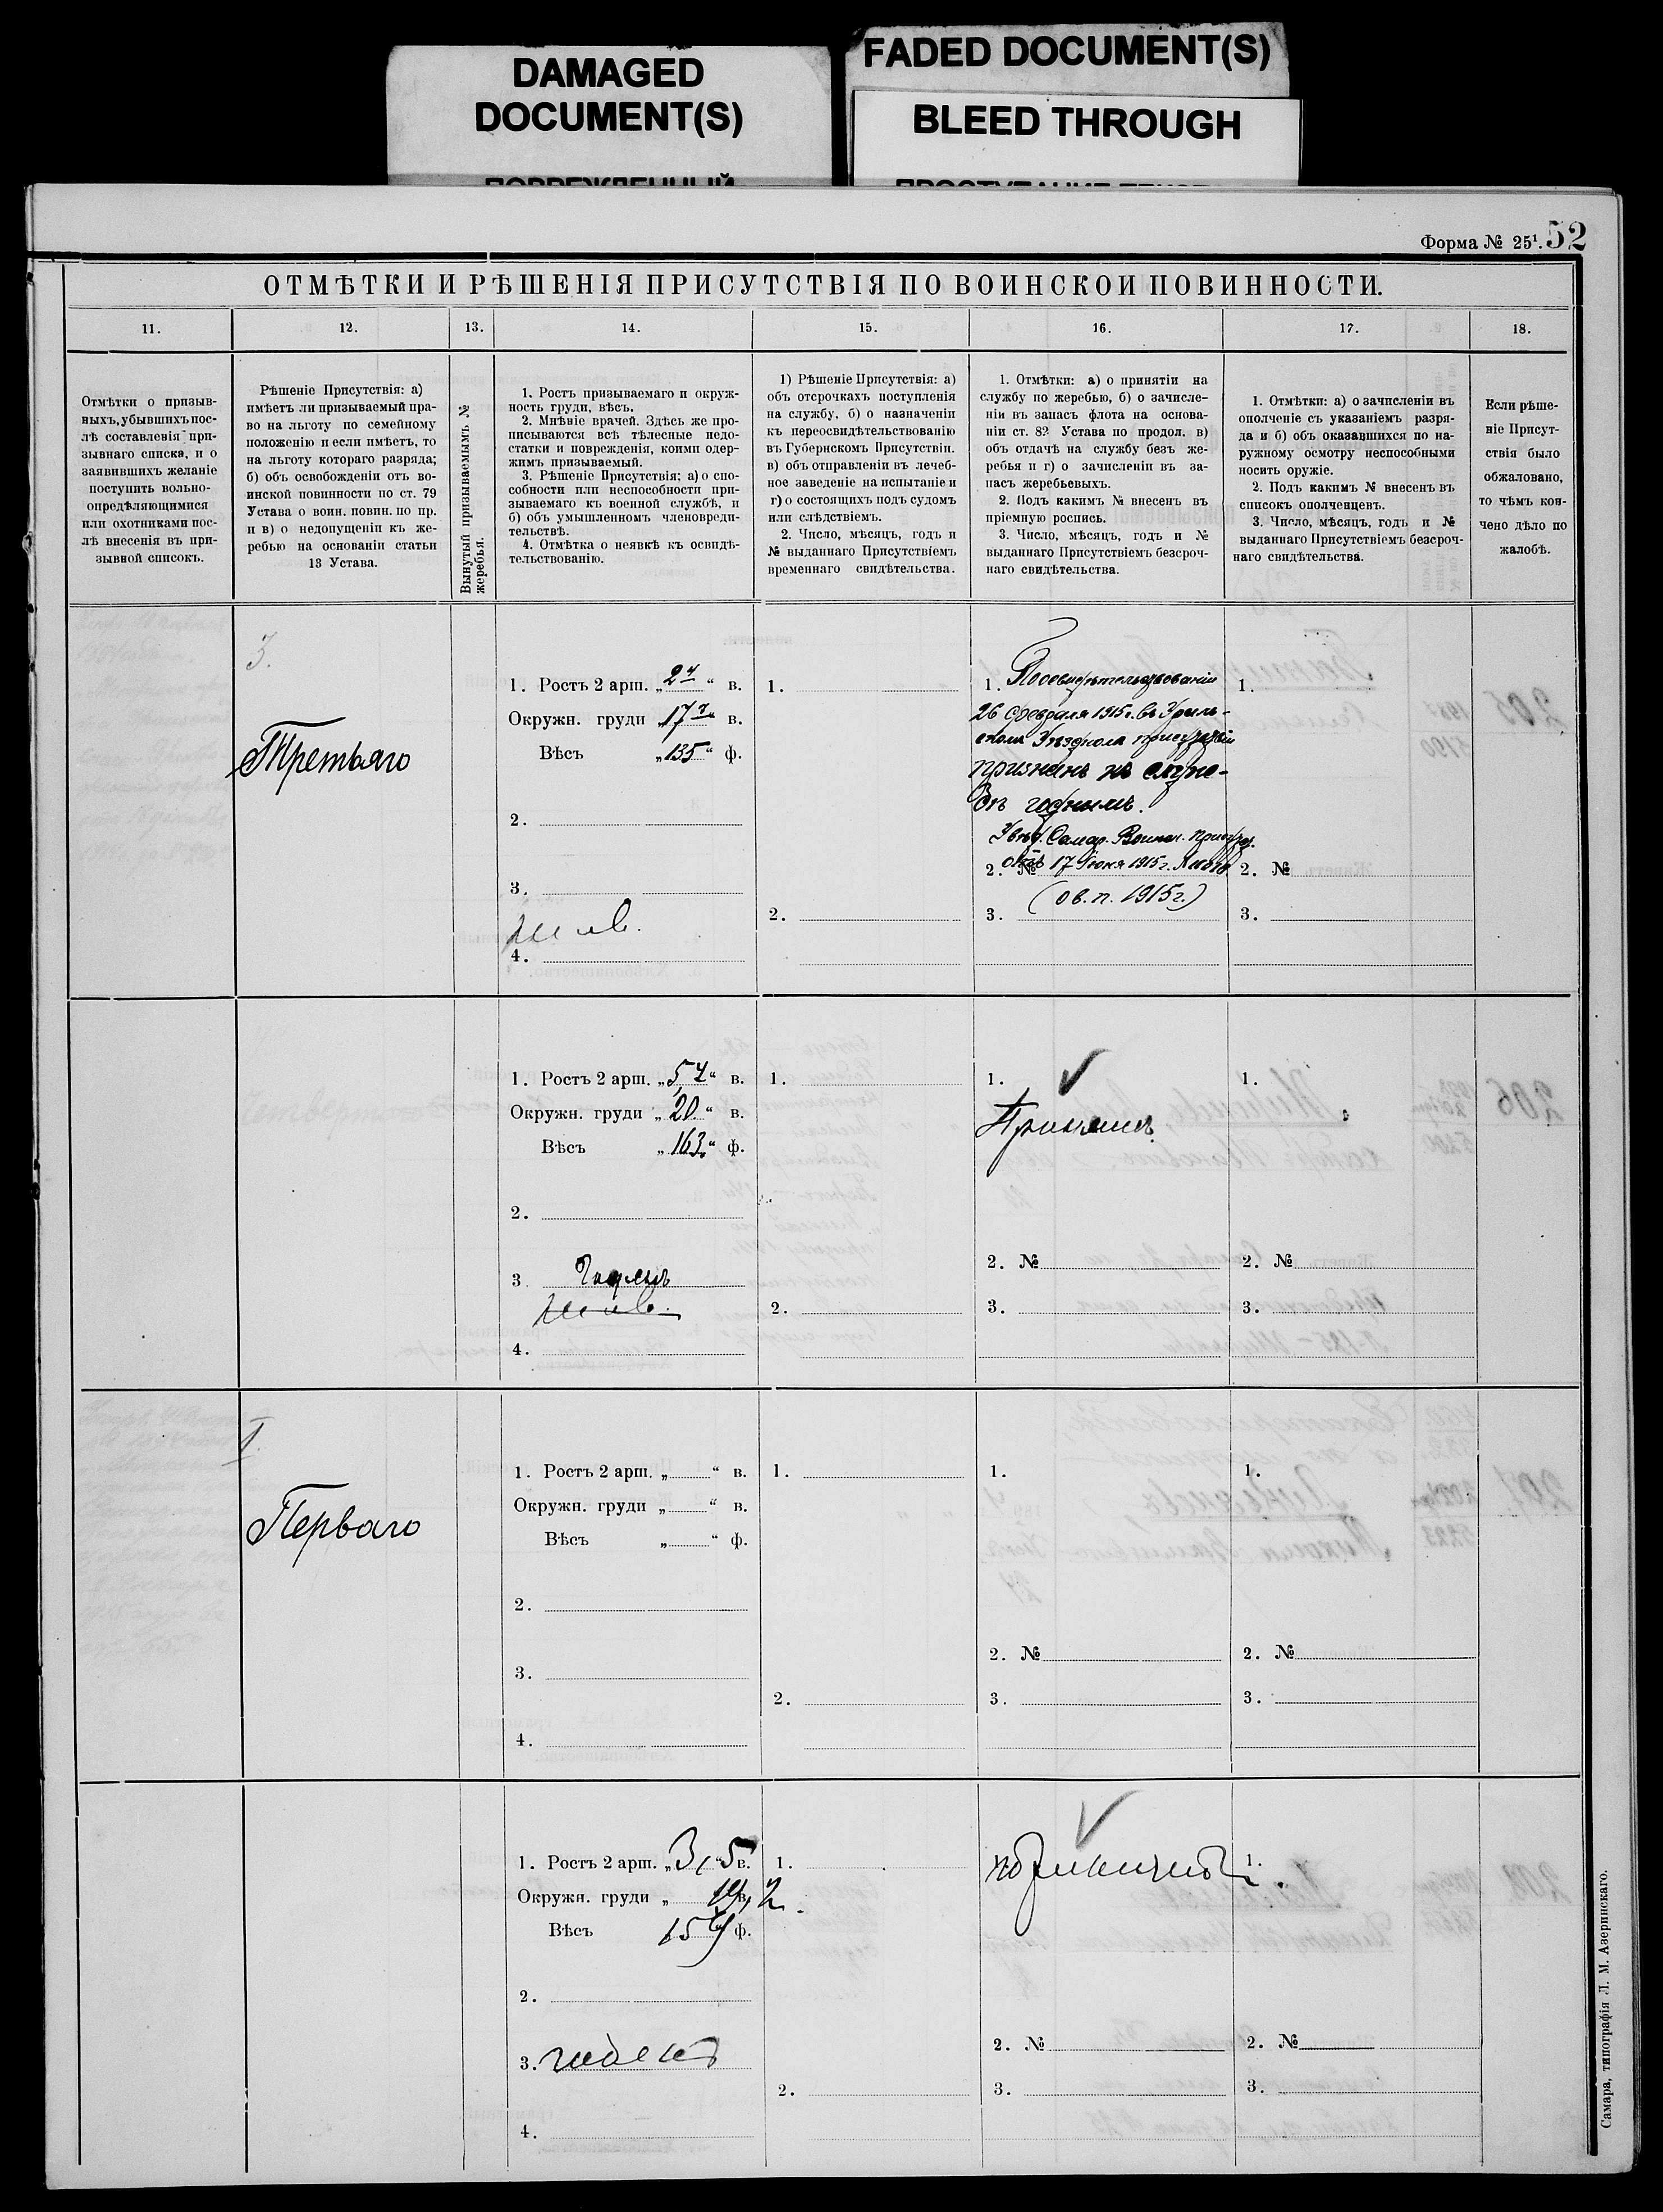 DAMAGED
DOCUMENT(S)
FADED DOCUMENT(S)
BLEED THROUGH
Форма № 25¹. 52
ОТМѢТКИ И РѢШЕНІЯ ПРИСУТСТВІЯ ПО ВОИНСКОИ ПОВИННОСТИ.
11. 12. 13. 14. 15. 16. 17. 18.
Отмѣтки о призыв-
ныхъ, убывшихъ пос-
лѣ составленія при-
зывнаго списка, и о
заявившихъ желаніе
поступить вольно-
опредѣляющимися
или охотниками пос-
лѣ внесенія въ при-
зывной списокъ.
Рѣшеніе Присутствія: а)
имѣетъ ли призываемый пра-
во на льготу по семейному
положенію и если имѣетъ, то
на льготу котораго разряда;
б) объ освобожденіи отъ во-
инской повинности по ст. 79
Устава о воин. повин. по пр.
и в) о недопущеніи къ же-
ребью на основаніи статьи
13 Устава.
Вынутый призываемымъ №
жеребья.
1. Ростъ призываемаго и окруж-
ность груди, вѣсъ.
2. Мнѣніе врачей. Здѣсь же про-
писываются всѣ тѣлесные недо-
статки и поврежденія, коими одер-
жимъ призываемый.
3. Рѣшеніе Присутствія: а) о спо-
собности или неспособности при-
зываемаго къ военной службѣ, и
б) объ умышленномъ членовреди-
тельствѣ.
4. Отмѣтка о неявкѣ къ освидѣ-
тельствованію.
1) Рѣшеніе Присутствія: а)
объ отсрочкахъ поступленія
на службу, б) о назначеніи
къ переосвидѣтельствованію
въ Губернскомъ Присутствіи.
в) объ отправленіи въ лечеб-
ное заведеніе на испытаніе и
г) о состоящихъ подъ судомъ
или слѣдствіемъ.
2. Число, мѣсяцъ, годъ и
№ выданнаго Присутствіемъ
временнаго свидѣтельства.
1. Отмѣтки: а) о принятіи на
службу по жеребью, б) о зачисле-
ніи въ запасъ флота на основа-
ніи ст. 82 Устава по продол. в)
объ отдачѣ на службу безъ же-
ребья и г) о зачисленіи въ за-
пасъ жеребьевыхъ.
2. Подъ какимъ № внесенъ въ
пріемную роспись.
3. Число, мѣсяцъ, годъ и №
выданнаго Присутствіемъ безсроч-
наго свидѣтельства.
1. Отмѣтки: а) о зачисленіи въ
ополченіе съ указаніемъ разря-
да и б) объ оказавшихся по на-
ружному осмотру неспособными
носить оружіе.
2. Подъ какимъ № внесенъ въ
списокъ ополченцевъ.
3. Число, мѣсяцъ, годъ и №
выданнаго Присутствіемъ безсроч-
наго свидѣтельства.
Если рѣше-
ніе Присут-
ствія было
обжаловано,
то чѣмъ кон-
чено дѣло по
жалобѣ.
3.
Третьяго
1. Ростъ 2 арш. „2 4“ в.
Окружн. груди „17 “ в.
Вѣсъ „135“ ф.
2.
3.
4.
1.
2.
1. Поосвидѣтельствованіи
26 февраля 1915 г. въ
присутствіи
признанъ къ служ-
бѣ годнымъ.
Самар. Воинск.
17 Іюня 1915 г.
(ов. п. 1915 г.)
2. №
3.
1.
2. №
3.
1. Ростъ 2 арш. „5,4“ в.
Окружн. груди „20“ в.
Вѣсъ „163“ ф.
2.
3 Годенъ
4.
1.
2.
1.
Принятъ
2. №
3.
1.
2. №
3.
1.
Перваго
1. Ростъ 2 арш. „ “ в.
Окружн. груди „ “ в.
Вѣсъ „ “ ф.
2.
3.
4.
1.
2.
1.
2. №
3.
1.
2. №
3.
1. Ростъ 2 арш. „3,5 в.
Окружн. груди „ в.
Вѣсъ ф.
2.
3. годенъ
4.
1.
2.
2. №
3.
1.
2. №
3.
Самара, типографія Л. М. Азеринскаго.